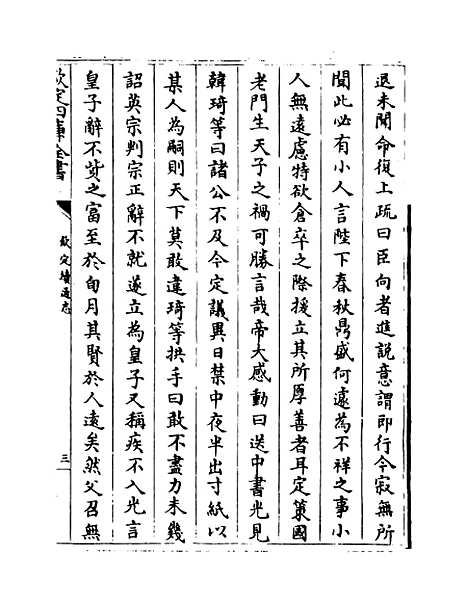 退未聞命復上疏曰臣向者進說意謂即行今寂無所
聞此必有小人言陛下春秋鼎盛何遽為不祥之事小
人無遠慮特欲倉卒之際援立其所厚善者耳定策國
老門生天子之禍可勝言哉帝大感動曰送中書光見
韓琦等曰諸公不及今定議異日禁中夜半出寸紙以
某人為嗣則天下莫敢違琦等拱手曰敢不盡力未幾
詔英宗判宗正辭不就遂立為皇子又稱疾不入光言
皇子辭不貲之富至於旬月其賢於人遠矣然父召無
欽定四庫全書
欽定續通志
三